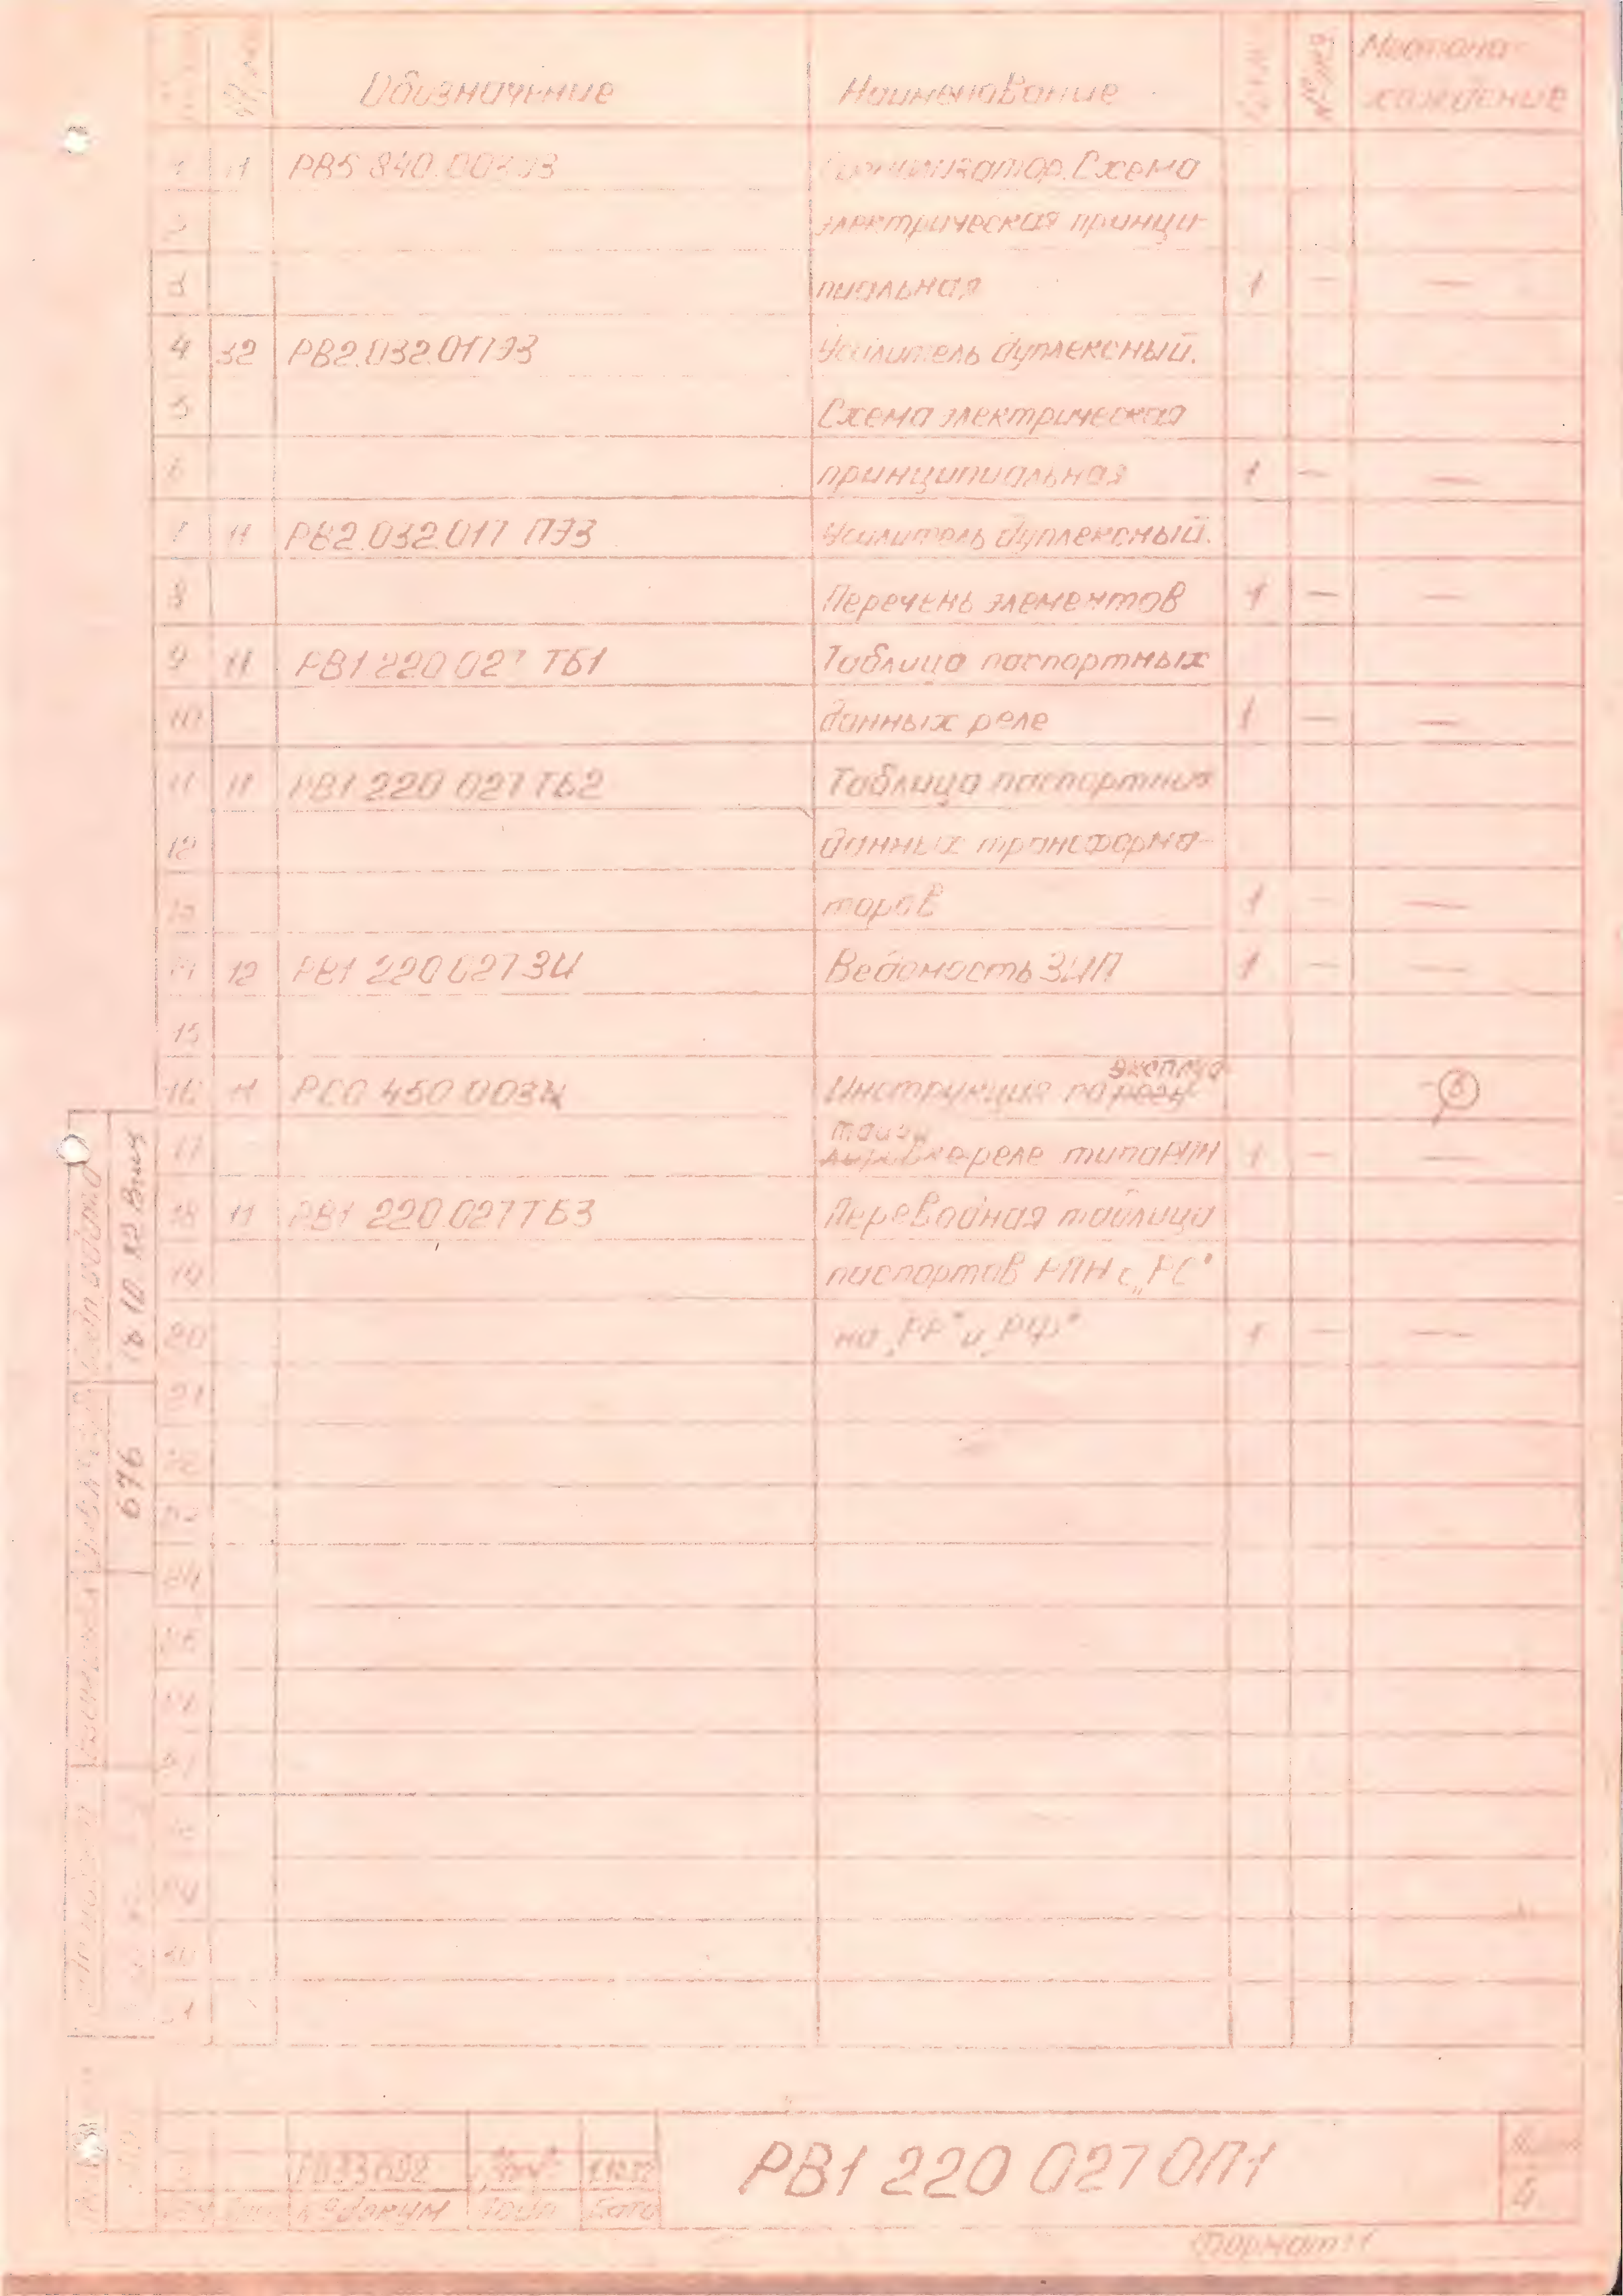 Обозначение Наименование № экз Местона-
хождение
1 11 РВ5.840.003Э3 Схема
электрическая принци-
3 пиальная 1 — —
4 32 РВ2.032.017Э3 Усилитель дуплексный.
5 Схема электрическая
6 принципиальная 1 — —
7 11 РВ2.032.017 ПЭ3 Усилитель дуплексный.
8 Перечень элементов 1 — —
9 11 РВ1 220 027 ТБ1 Таблица паспортных
10 данных реле 1 — —
11 11 РВ1 220 027 ТБ2 Таблица паспортных
12 данных трансформа-
13 торов 1 — —
14 12 РВ1 220 027 ЗИ Ведомость ЗИП 1 — —
15
эксплуа
16 11 РС0 450 003 Инструкция по регу- 6
тации
17 реле типа РПН 1 — —
18 11 РВ1 220.027 ТБ3 Переводная таблица
19 паспортов РПН с „РС"
20 на „РР" и „РФ" 1 — —
21
22
23
24
25
26
27
28
29
30
31
18.10.82
676
РВ33692 1.10.82
№ докум Подп Дата
РВ1 220 027 ОП1
Лист
4
Формат 11